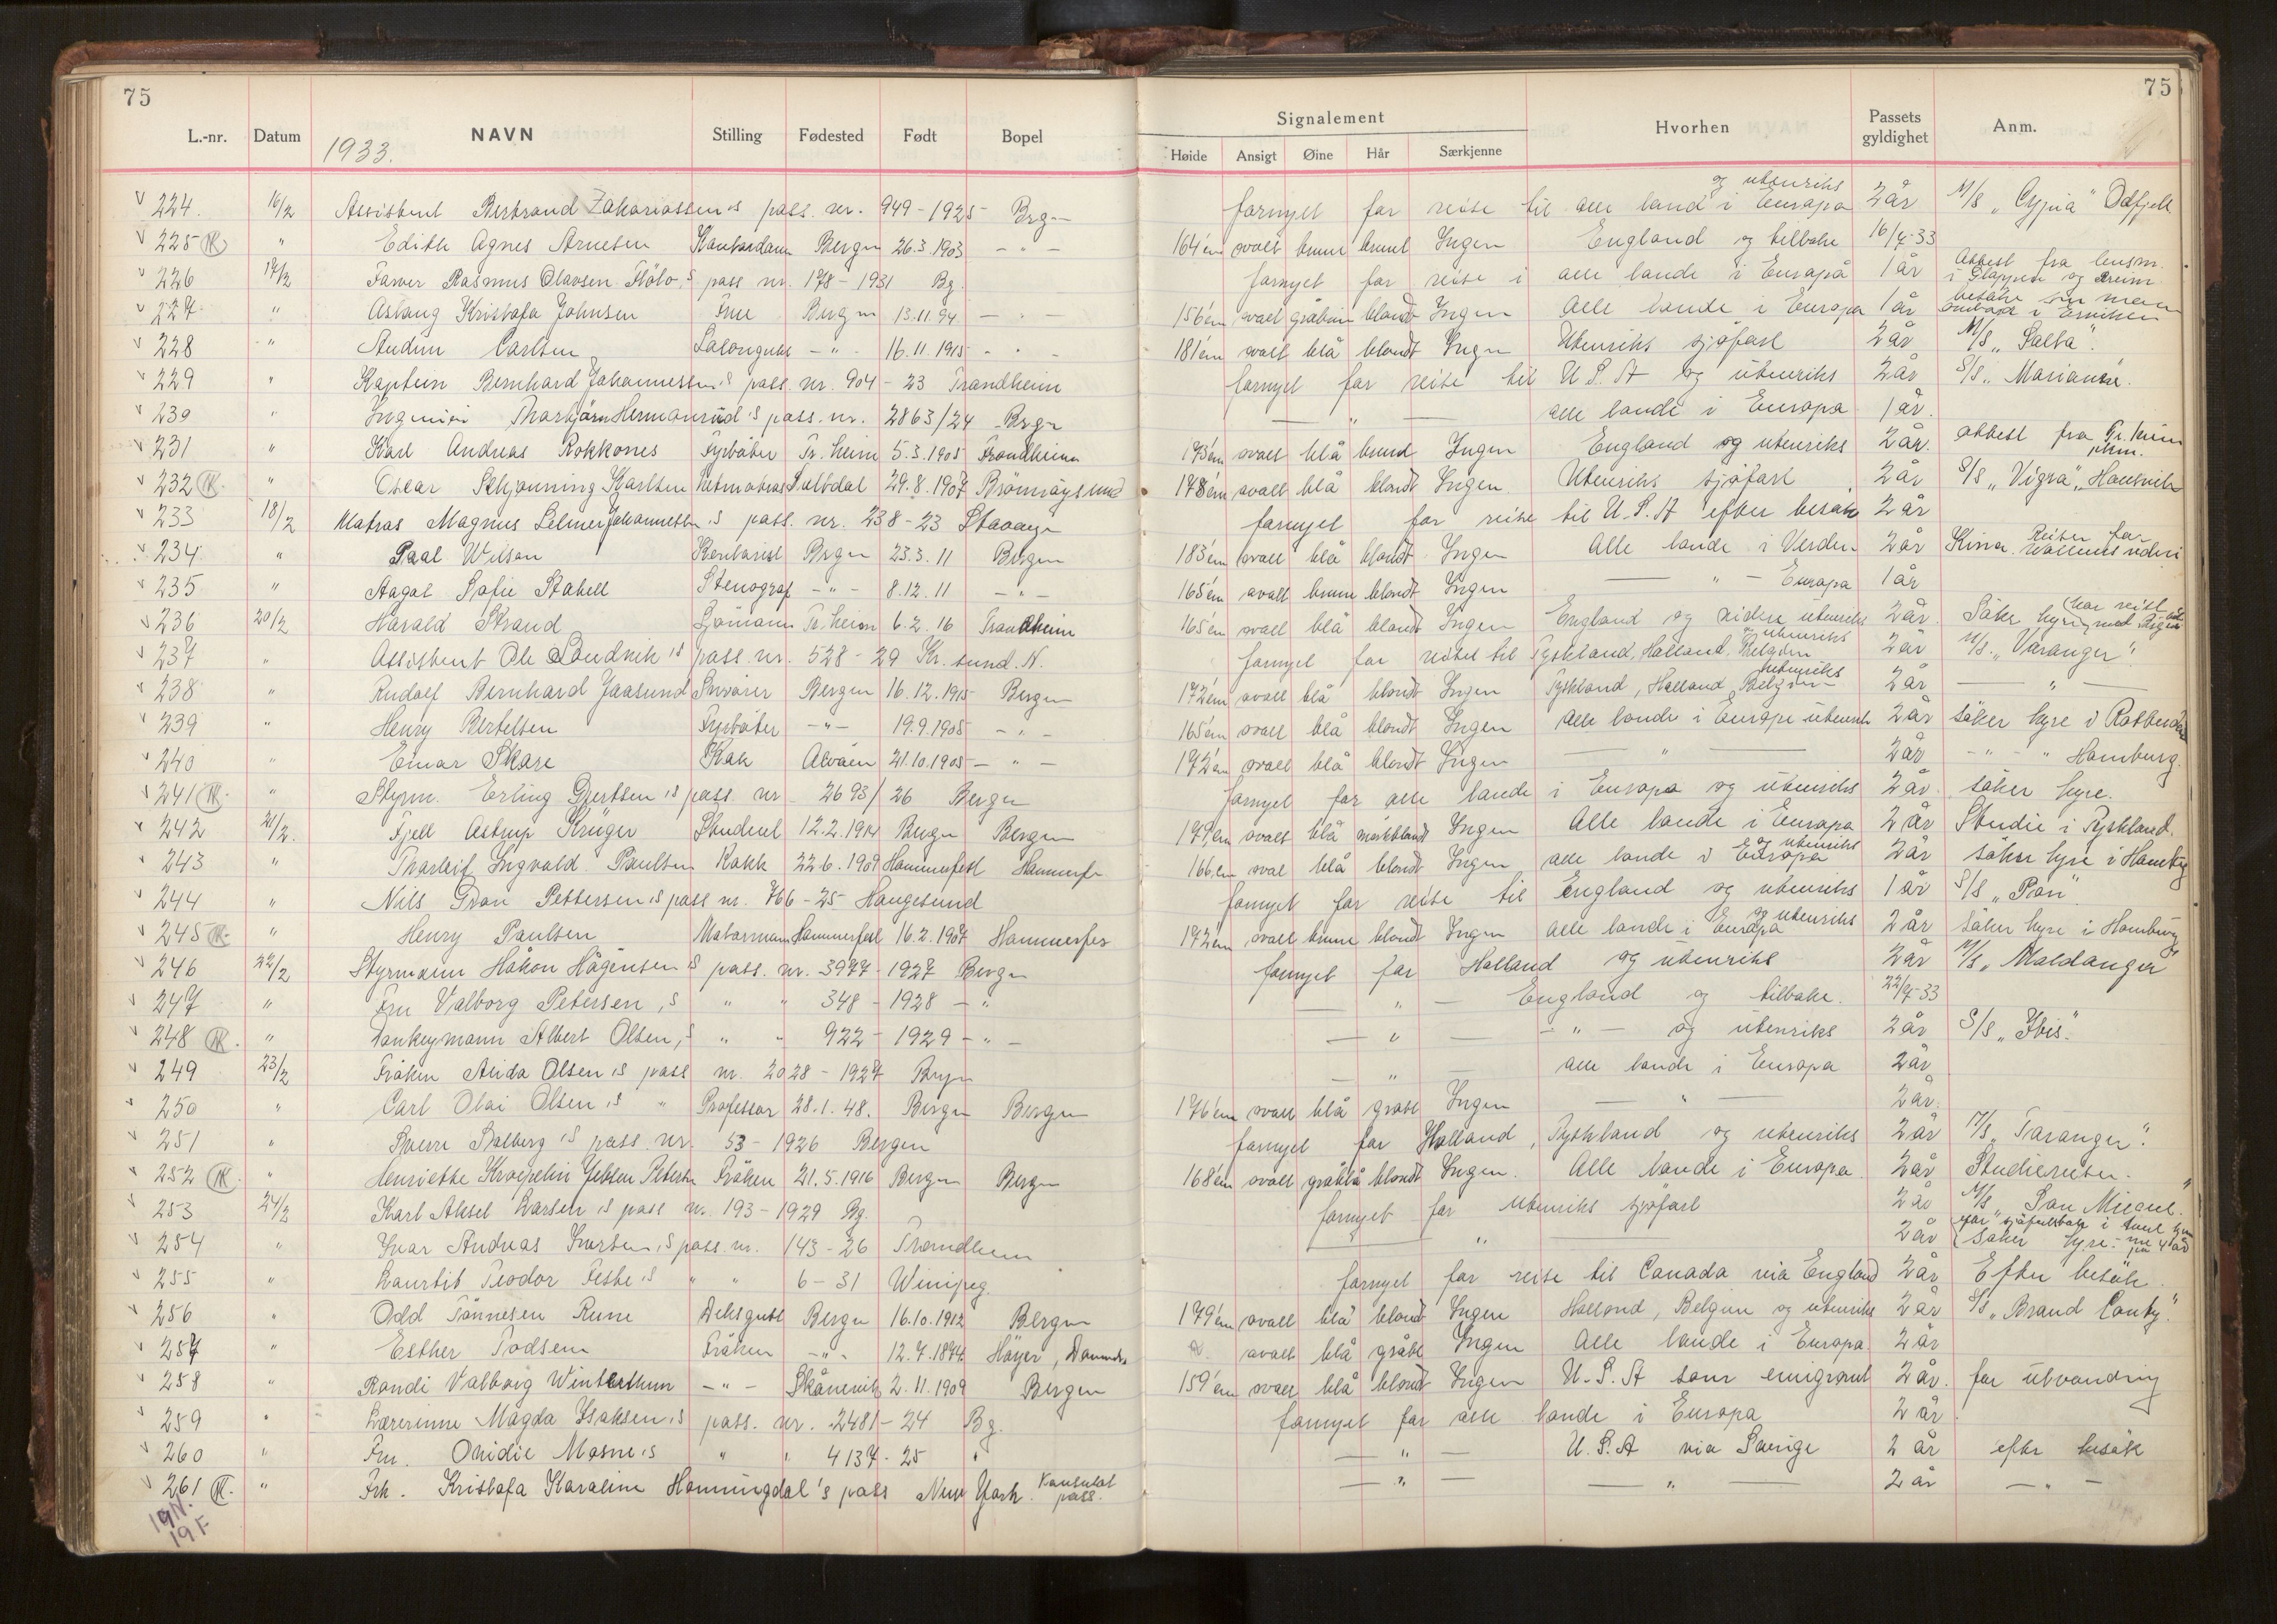 75
75
L.-nr. Datum NAVN Stilling Fødested Født Bopel Signalement Hvorhen Passets gyldighet Anm.
1933.
Høide Ansigt Øine Hår Særkjenne
224. 16/2 Assistent Bertrand Zakariassen's pass. nr. 949-1925 Brgn fornyet for reise til alle land i Europa og utenriks 2 år M/S "Cypria" Odfjell
225 " Edith Agnes Arnesen Kontordame Bergn 26.3.1903 - " - 164 cm ovalt brune brunt Ingen England og tilbake 16/4-33
226 17/2 Farver Rasmus Olavsen 's pass nr. 178-1931 Bg. fornyet for reise i alle lande i Europa 1 år Attest fra lensm. i
227 " Aslaug Kristofa Johnsen Frue Bergn 13.11.94 - " - 156 cm ovalt gråbrun blondt Ingen Alle lande i Europa 1 år besøke sin mann ombord i
228 " Audun Carlsen - " - 16.11.1915 - " - 181 cm ovalt blå blondt Ingen Utenriks sjøfart 2 år M/S "Salta".
229 " Kaptein Bernhard Johannessen's pass. nr. 904-23 Trondheim fornyet for reise til U.S.A og utenriks 2 år S/S "Marianne".
230 " Ingeniør Thorbjørn Hermansrud's pass. nr. 2863/24 Bergn - " - alle lande i Europa 1 år.
231 " Karl Andreas Rokkones Fyrbøter Tr.heim 5.3.1905 Trondheim 173 cm ovalt blå brund Ingen England og utenriks 2 år. attest fra Tr.heim pkm.
232 " Oscar Schjønning Karlsen Letmatros Saltdal 29.8.1907 Brønnøysund 178 cm ovalt blå blondt Ingen Utenriks sjøfart 2 år S/S "Vigra", Hansvik
233 18/2 Matros Magnus Selmer Johannessen's pass. nr. 238-23 Stavager fornyet for reise til U.S.A efter besøk 2 år
234 " Paal Wilson Kontorist Brgn 23.3.11 Bergen 183 cm ovalt blå blondt Ingen Alle lande i Verden 2 år Kina. Reiser for Wallems rederi
235 " Aagot Sofie Stabell Stenograf - " - 8.12.11 - " - 165 cm ovalt brune blondt Ingen - " - Europa 1 år
236 20/2 Harald Strand Sjømann Tr.heim 6.2.16 Trondheim 165 cm ovalt blå blondt Ingen England og videre utenriks 2 år. Søke hyre (har reist med
237 " Assistent Ole Sandvik's pass. nr. 528-29 Kr.sund.N. fornyet for reise til Tyskland, Holland, Belgien og utenriks 2 år M/S. "Varanger".
238 " Rudolf Bernhard Jaasund Smører Bergen 16.12.1915 Bergen 172 cm ovalt blå blondt Ingen Tyskland, Holland, Belgien utenriks 2 år - " -
239 " Henry Bertelsen Fyrbøter - " - 19.9.1905 - " - 165 cm ovalt blå blondt Ingen alle lande i Europa utenriks 2 år søker hyre i Rotterdam
240 " Einar Skare Kok Alvøen 21.10.1905 - " - 172 cm ovalt blå blondt Ingen - " - 2 år - " - " Hamburg.
241 " Styrm. Erling Gjertsen's pass. nr. 2693/26 Bergn fornyet for alle lande i Europa og utenriks 2 år. søker hyre.
242 21/2. Fjell Astrup Krüger Student 12.2.1914 Bergn Bergen 179 cm ovalt blå mørkblondt Ingen Alle lande i Europa 2 år Studie i Tyskland.
243 " Thorleif Ingvald Paulsen Kokk 22.6.1909 Hammerfest Hammerf. 166 cm oval blå blondt Ingen alle lande i Europa og utenriks 2 år søker hyre i Hambg
244 " Nils Gran Pettersen's pass nr. 766-25 Haugesund fornyet for reise til England og utenriks 1 år S/S "Pan"
245 " Henry Paulsen Motormann Hammerfest 16.2.1907 Hammerfes 172 cm ovalt brune blondt Ingen alle lande i Europa og utenriks 2 år søker hyre i Hamburg
246 22/2 Styrmann Håkon Hågensen's pass. nr. 3977-1927 Bergn fornyet for Holland og utenriks 2 år M/S "Maldanger"
247 " Fru Valborg Petersen,s " " 348-1928 - " - " - England og tilbake. 22/4-33
248 " Donkeymann Albert Olsen,s " " 922-1929 - " - - " - - " - og utenriks 2 år S/S "Ibis".
249 23/2 Frøken Alida Olsen's pass nr. 2028-1927 Brgn - " - alle lande i Europa 2 år
250 " Carl Olai Olsen's " Professor 28.1.48. Bergn Bergen 176 cm ovalt blå grått Ingen - " - 2 år.
251 " Sverre Salberg's pass. nr. 53-1926 Bergen fornyet for Holland, Tyskland og utenriks 2 år M/S "Taranger".
252 " Henriette Kroepelin Jebsen Petersen Frøken 21.5.1916 Bergen Bergn 168 cm ovalt gråblå blondt Ingen. Alle lande i Europa. 2 år Studiereise.
253 24/2 Karl Aksel Larsen's pass nr. 193-1929 Bg. fornyet for utenriks sjøfart 2 år M/S "San Micael."
254 " Ivar Andreas Iversen,s pass. nr. 143-26 Trondheim - " - 2 år søker hyre.
255 " Lauritz Teodor Feste's " " 6-31 Winipeg. fornyet for reise til Canada via England 2 år Efter besøk.
256 " Odd Tønnesen Rune Dekksgutt Bergn 16.10.1912 Bergen 179 cm ovalt blå blondt Ingen Holland, Belgien og utenriks 2 år S/S "Brand Conty".
257 " Esther Todsen Frøken - " - 12.7.1874 Høyer, Danmark ovalt blå grått Ingen Alle lande i Europa. 2 år
258 " Randi Valborg Winterthun - " - Skånevik 2.11.1909 Bergen 159 cm ovalt blå blondt Ingen U.S.A som emigrant 2 år. for utvandring
259 " Lærerinne Magda Isaksen's pass. nr. 2481-24 Bg. fornyet for alle lande i Europa 2 år.
260 " Fru. Ovidie Mosne's " " 4137-25 " - " - U.S.A via Sverige 2 år efter besøk
261 " Frk. Kristofa Karoline Hommingdal's pass New York. Konsulat pass. - " - - " - 2 år - " -
19N.
19F